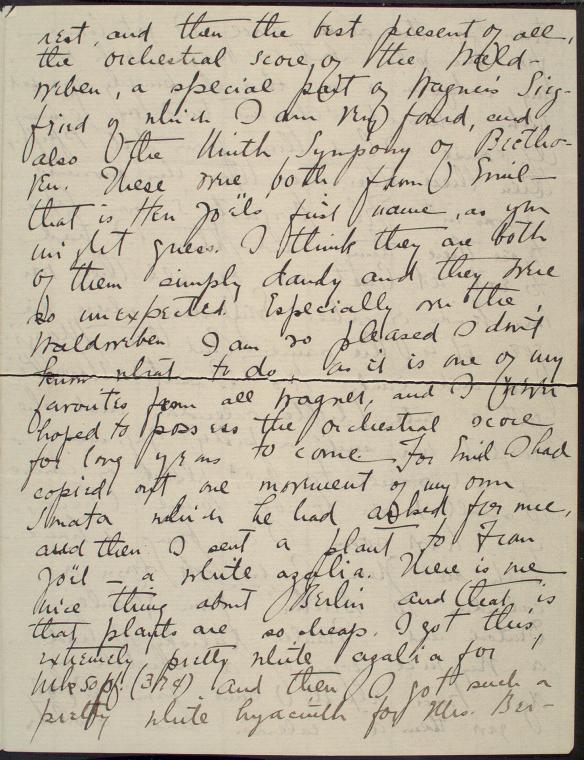 rest, and then the best present of all,
the orchestral score of the Wald-
weben, a special part of Wagner's Sieg-
fried of which I am very fond, and
also the Ninth Sympony of Beetho-
ven. These were both from Emil –
that is Herr Joëls' first name, as you
might guess. I think they are both
of them simply dandy and they were
so unexpected. Especially over the
Waldweben I am so pleased I don't
know what to do, as it is one of my
favorites from all Wagner, and I never
hoped to possess the orchestral score
for long years to come. For Emil I had
copied out one movement of my own
Sonata which he had asked for me,
and then I sent a plant to Frau
Joël – a white azalia. There is one
nice thing about Berlin and that is
that plants are so cheap. I got this
extremely pretty white azalia for
and then I got such a
pretty white hyacinth for Mrs. Ber-